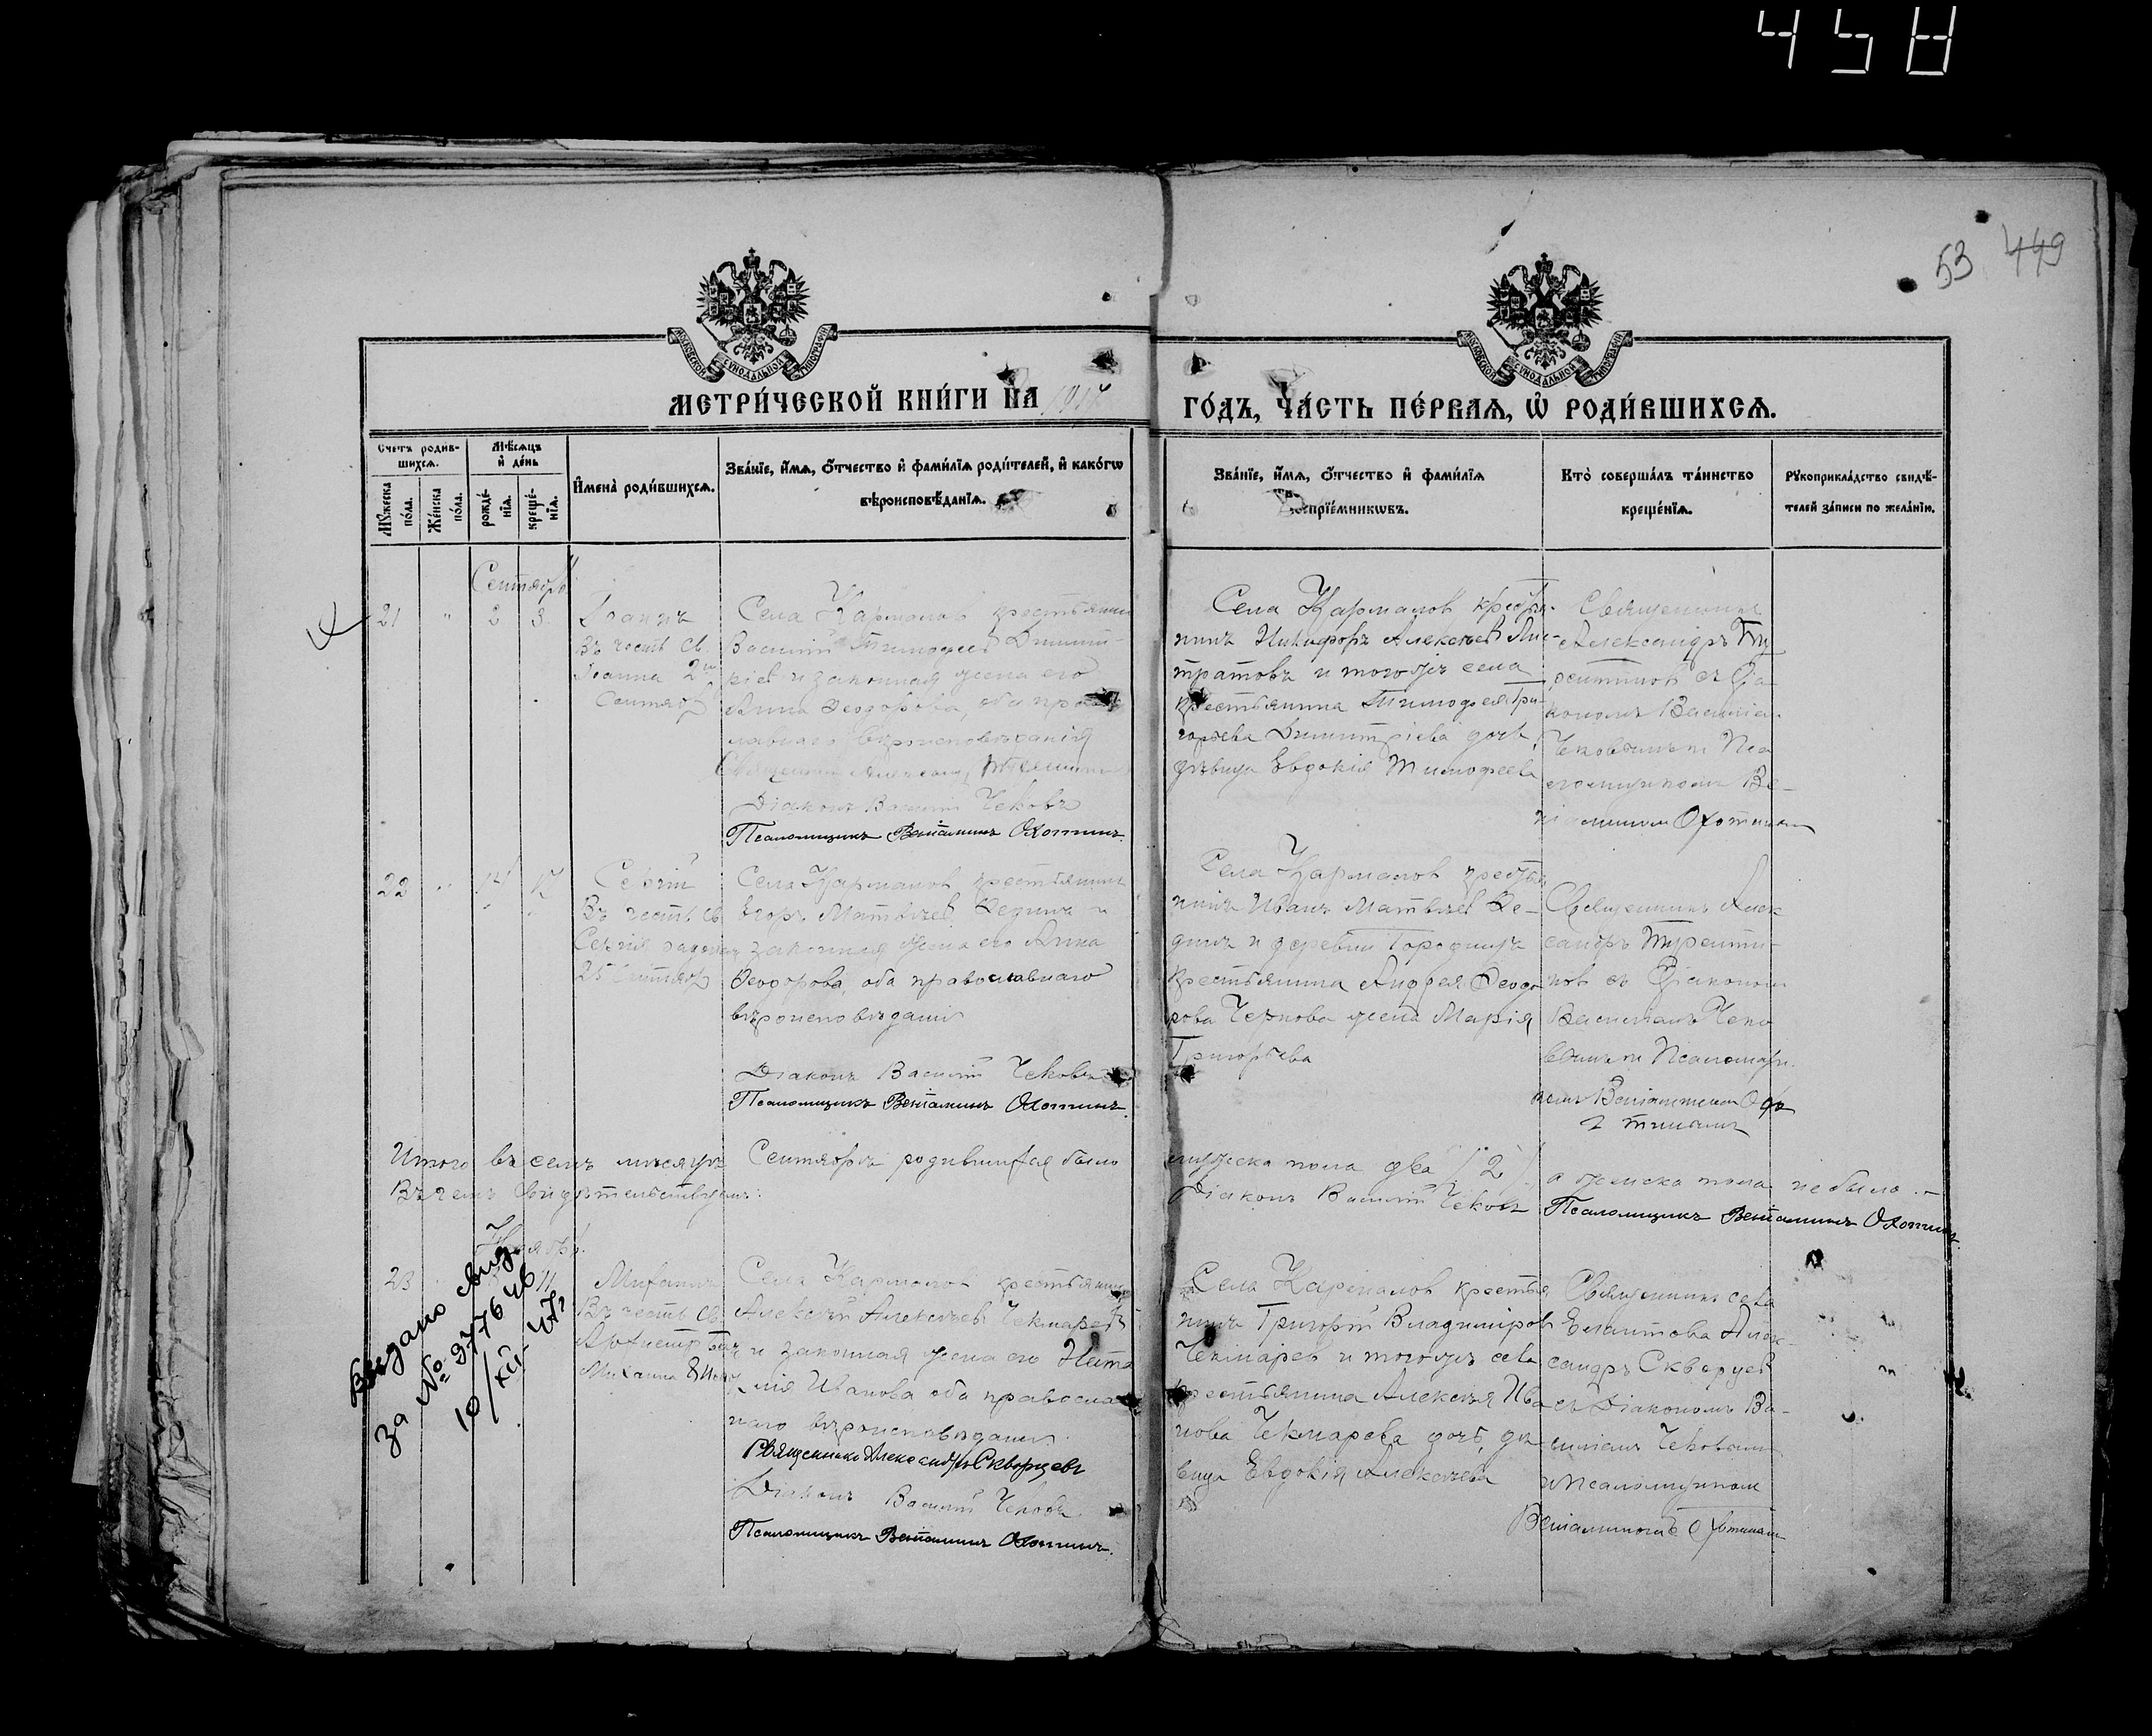 458
53 449
МОСКОВСКОЙ СѴНОДАЛЬНОЙ ТИПОГРАФІИ
МОСКОВСКОЙ СѴНОДАЛЬНОЙ ТИПОГРАФІИ
МЕТРИ́ЧЕСКОЙ КНИ́ГИ НА 191
ГО́ДЪ, ЧА́СТЬ ПЕ́РВАЯ, Ѡ҆ РОДИ́ВШИХСЯ.
Счетъ роди́в-
шихся.
Мѣ́сяцъ
и҆ де́нь
Мꙋ́жеска по́ла.
Же́нска по́ла.
рожде́-
нїя.
креще́-
нїя.
И҆мена̀ роди́вшихся.
Зва́нїе, и҆́мя, ѻ҆́тчество и҆ фами́лїя роди́телей, и҆ како́гѡ
вѣроисповѣ́данїя.
Зва́нїе, и҆́мя, ѻ҆́тчество и҆ фами́лїя
воспрїе́мникѡвъ.
Кто̀ соверша́лъ та́инство
креще́нїя.
Рꙋкоприкла́дство свидѣ́-
телей за́писи по жела́нїю.
Сентябрь
21 " 2 3
Іоаннъ
Въ честь св.
Іоанна 2го
Сентяб
Села Карманов крестьянин
Василий Тимофеев Димит-
ріев и законная жена его
Анна Феодорова, оба правос
лавнаго вѣроисповѣданія
Священник Александр
Діаконъ Василій Чековъ
Псаломщикъ Веніаминъ Охотинъ.
Села Карманов крестья-
нинъ Никифоръ Алексѣев
и тогожъ села
крестьянина Тимофея Гри-
горьева Димитріева дочь,
дѣвица Евдокія Тимофеева
Священникъ
Александръ
съ Діа
кономъ Василіем
Чековымъ и Пса
ломщикомъ Ве-
ніамином Охотиным
22 " 14 17
Сергій
Въ честь св
Сергія
25 Сентяб
Села Карманов крестьянин
Егоръ Матвѣев и
законная жена его Анна
Феодорова, оба православнаго
вѣроисповѣдания
Діаконъ Василій Чековъ
Псаломщикъ Веніаминъ Охотинъ.
Села Карманов крестья
нинъ Иванъ Матвѣев
и деревни
крестьянина Андрея Феодо
рова Чернова жена Марія
Григорьева
Священникъ Алек
сандръ
съ Діаконом
Василіемъ Чеко
вымъ и Псаломщи
комъ Веніамином Охо
тинымъ
Итого въ семъ мѣсяцѣ Сентябрѣ родившихся было мужеска пола два /2/ а женска пола не было.
Въ чемъ свидѣтельствуемъ: Діаконъ Василій Чековъ Псаломщикъ Веніаминъ Охотинъ.
Ноябрь
23 11
Выдано свид.
за № 977646
Михаилъ
Въ честь св.
Архистр
Михаила 8 Нояб
Села Карманов крестьянин
Алексѣй Алексѣев Чекмарев
и законная жена его Ната
лія Иванова оба правосла
наго вѣроисповѣдания.
Священникъ Александръ Скворцевъ
Діаконъ Василій Чековъ
Псаломщикъ Веніаминъ Охотинъ.
Села Карманов крестья
нинъ Григорій Владиміров
Чекмарев и тогожъ села
крестьянина Алексѣя Ива
нова Чекмарева дочь, дѣ-
вица Евдокія Алексѣева
Священникъ села
Елатова Алек
сандръ Скворцев
съ Діакономъ Ва-
силіемъ Чековым
и Псаломщиком
Веніаминомъ Охотиным